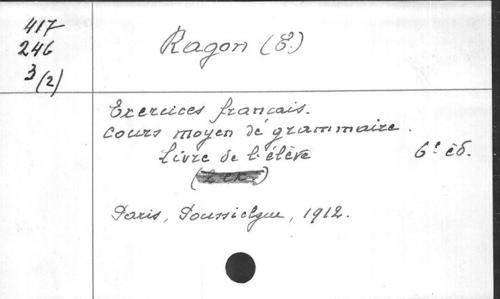 417
246
3/(2)
Ragon (E.)
Exercices français.
Cours moyen de grammaire.
Livre de l'élève 6e éd.
(2 ex.)
Paris, Poussielgue, 1912.